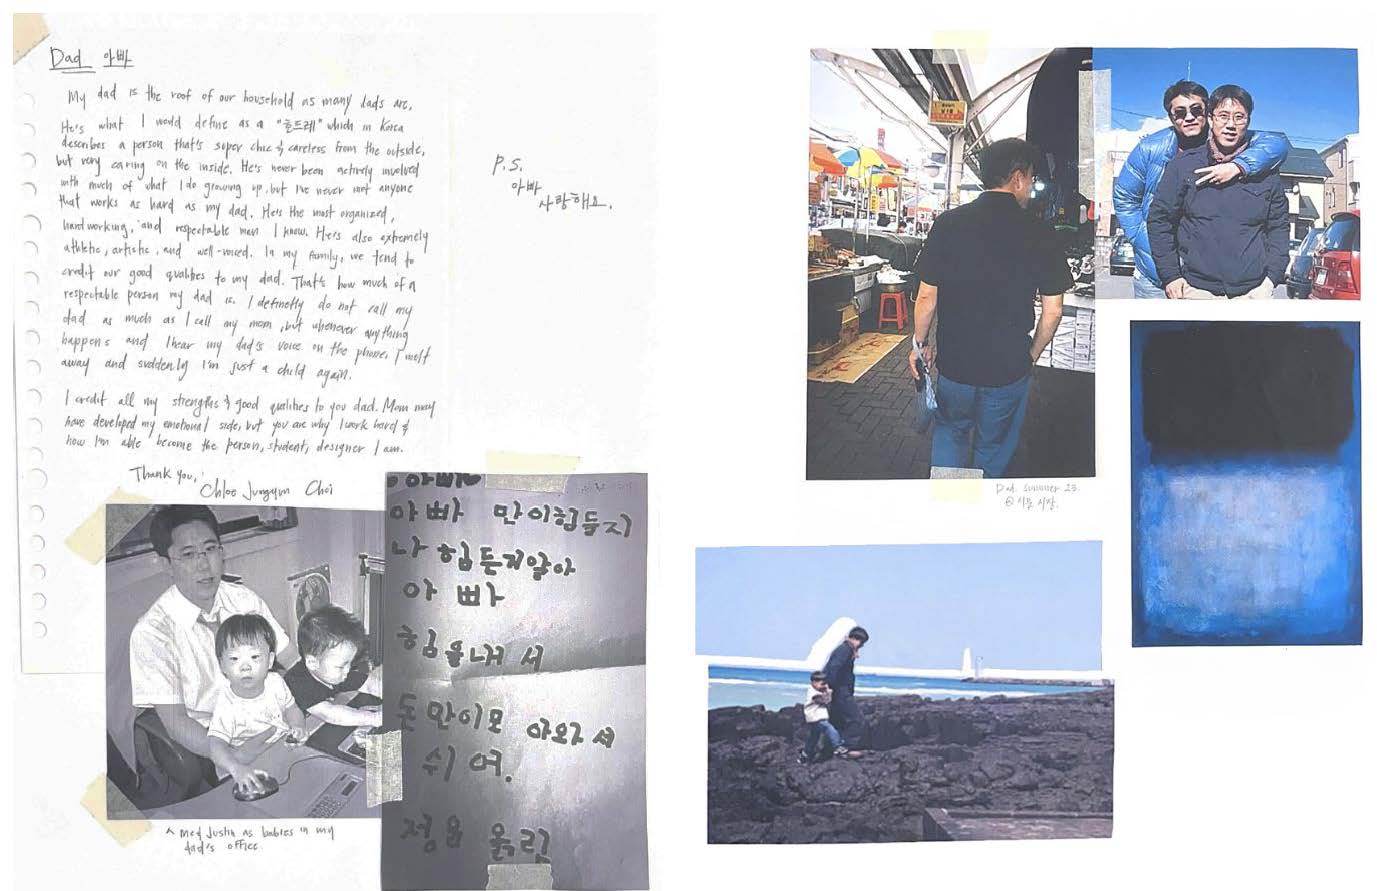 Dad 아빠
My dad is the roof of our household as many dads are,
He's what I would define as a "츤드레" which in Korea
describes a person that's super chic & careless from the outside,
but very caring on the inside. He's never been actively involved
with much of what I do growing up, but I've never met anyone
that works as hard as my dad. He's the most organized,
hardworking, and respectable man I know. He's also extremely
athletic, artistic, and well-voiced. In my family, we tend to
credit our good qualities to my dad. That's how much of a
respectable person my dad is. I definetly do not call my
dad as much as I call my mom, but whenever anything
happens and I hear my dad's voice on the phone, I melt
away and suddenly I'm just a child again.
I credit all my strengths & good qualities to you dad. Mom may
have developed my emotional side, but you are why I work hard &
how I'm able become the person, student, designer I am.
Thank you,
Chloe Jungyun Choi
P.S.
아빠
사랑해요.
아빠 만이힘들지
나 힘든거알아
아빠
힘을내서
돈만이모 아와서
쉬어.
정윤 올린
^ Me & Justin as babies in my
dad's office.
Dad. summer 23.
@서문시장.